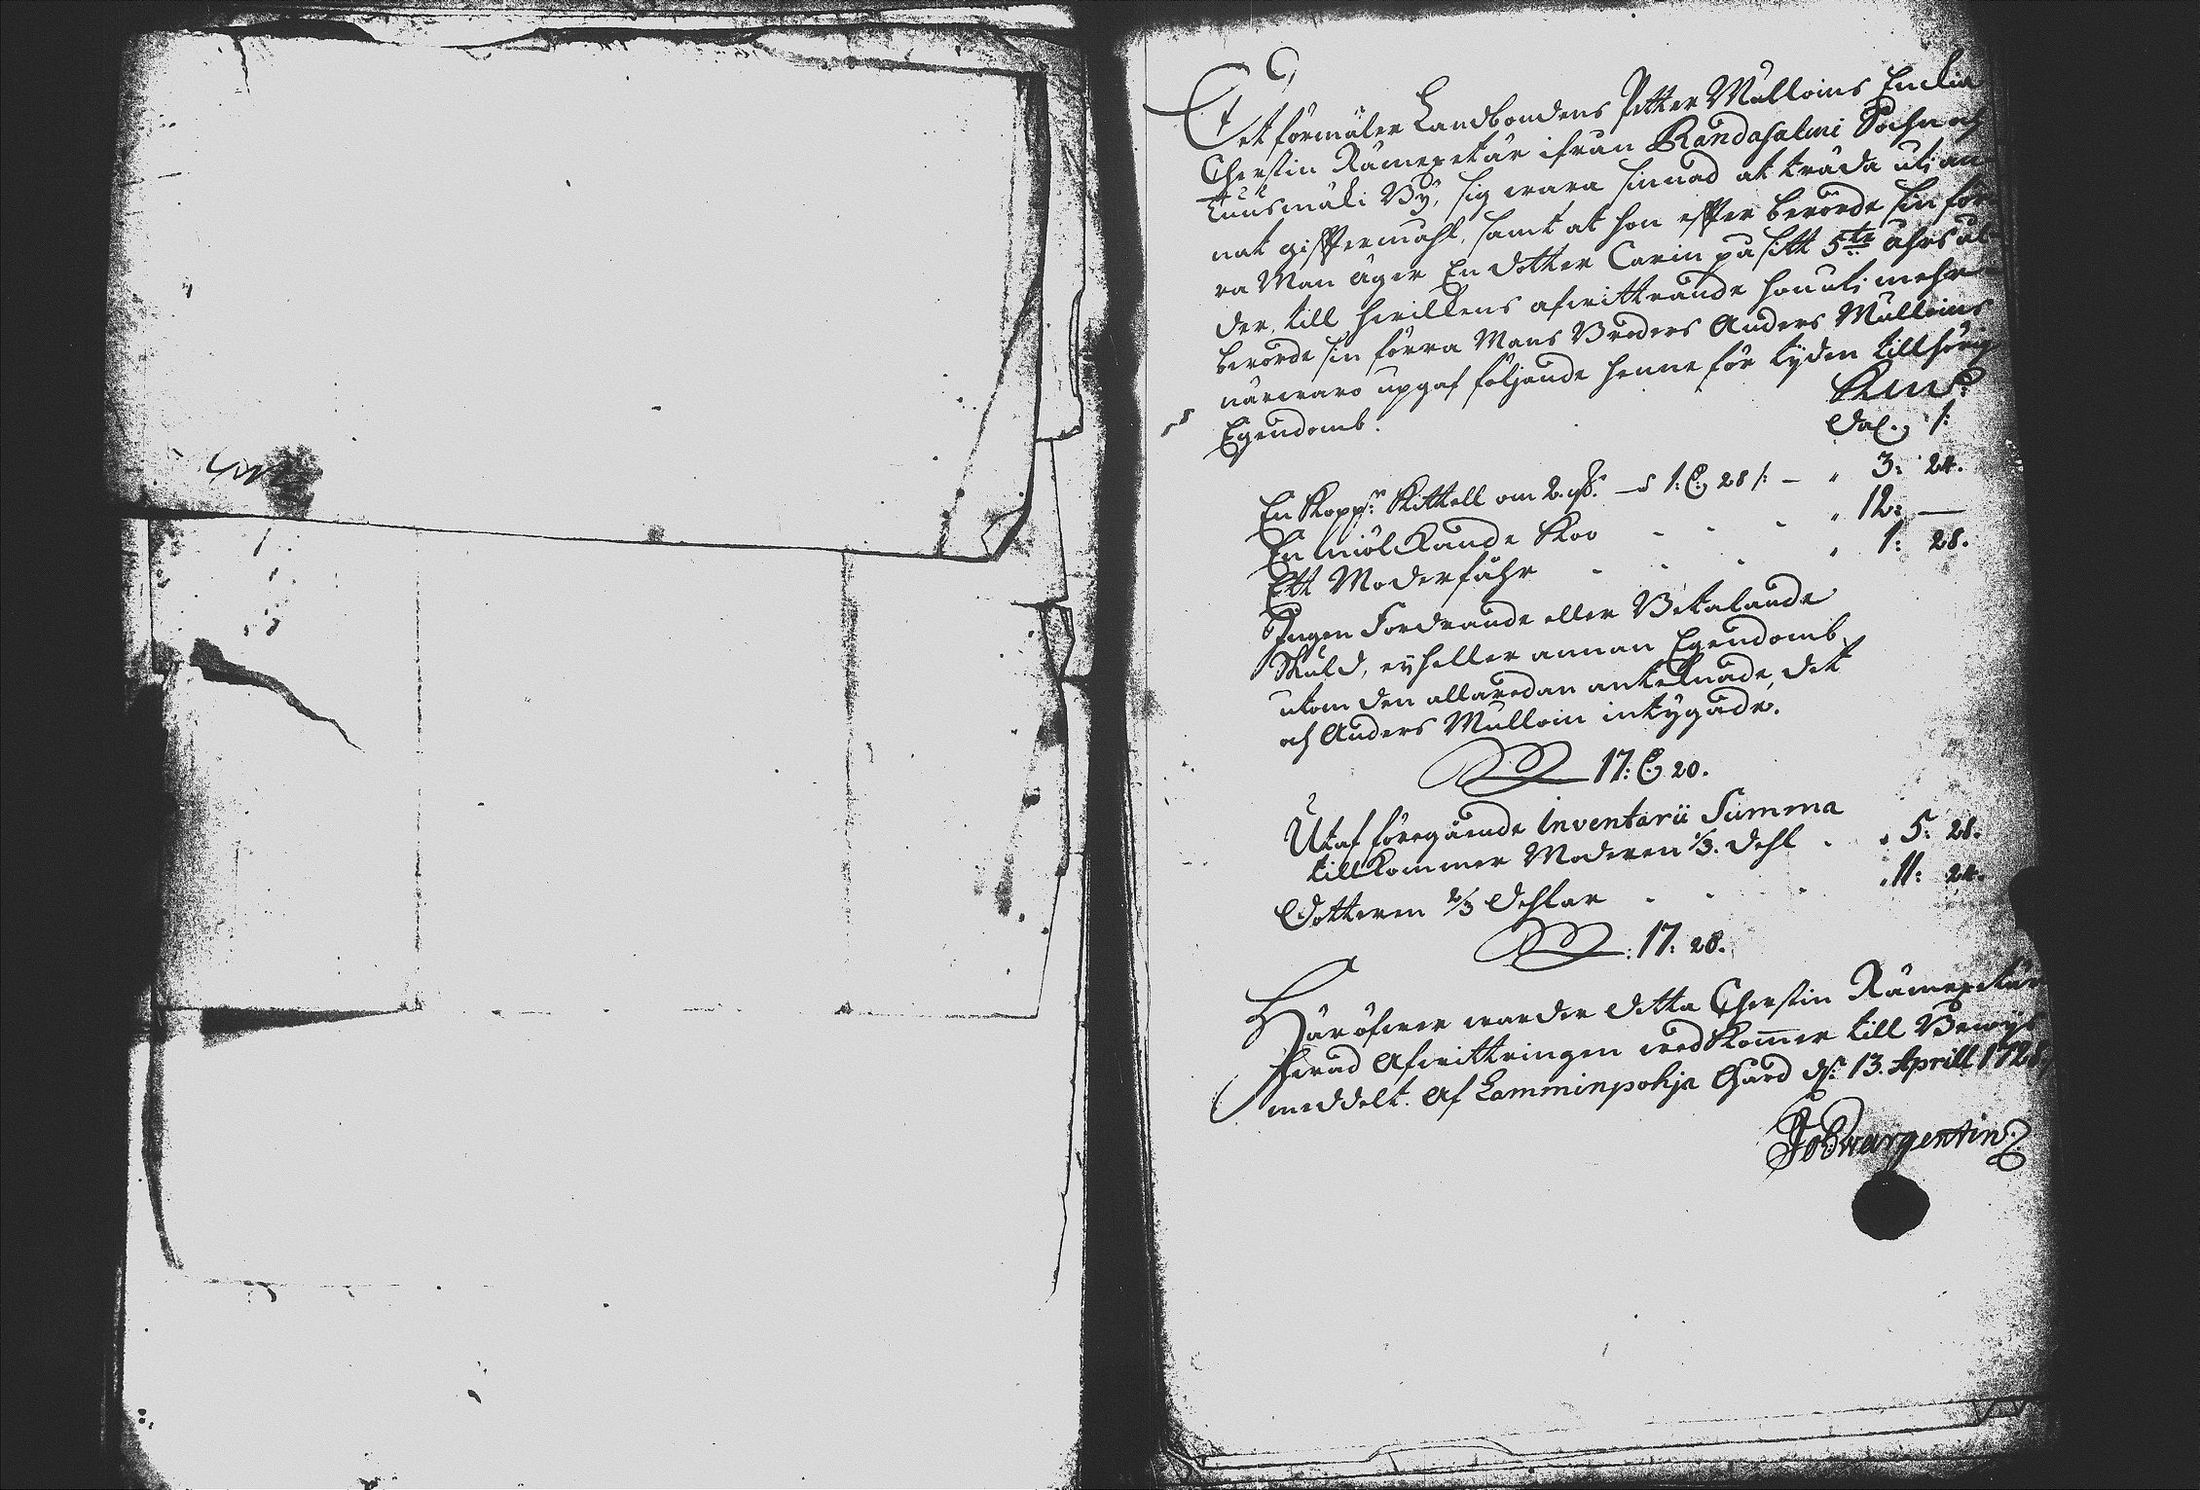 Det förmäler Landbondens Petter Mulloins Enckia
Cherstin Rämexetär ifrån Randasalmi Sochn och
Kuusmäki By, sig wara sinnad at träda uti an
nat gifftermåhl, samt at hon effter berörde sin för
ra Man äger En dotter Carin på sitt 5te åhrs ål-
der, till hwilkens afwittrande hon uti mehr
berörde sin förra Mans Broders Anders Mulloins
närwaro upgaf följande henne för tyden tillhörig
Egendomb.
Dal. s:
En Kopp:r Kittell om 2. - 1: 28 s: - " 3: 24.
En miölckande Koo - - - " 12: —
Ett Moderfåhr - - - " 1: 28.
Ingen Fordrande eller Betalande
Skuld, ey heller annan Egendomb
utom den allaredan anteknade, det
och Anders Mulloin intygade.
17: 20.
Utaf föregående Inventarii Summa
tillkommer Moderen 1/3. dehl - " 5: 28.
Dotteren 2/3 dehlar - - - " 11: 24.
: 17: 20.
Häröfwer warder detta Cherstin Rämexetär
hwad Afwittringen wedkommer till Bewys
meddelt. Af Lamminpohja Gård d: 13. Aprill 1728.
Joh Wargentin